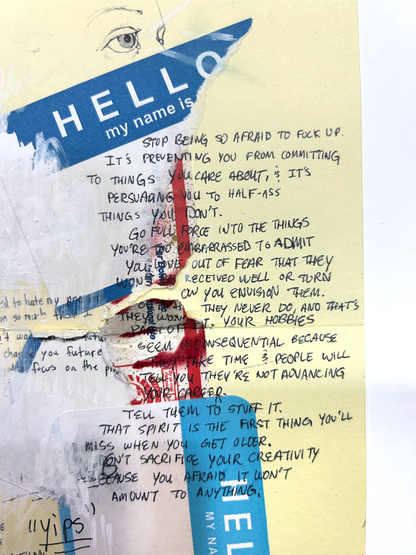 HELLO
my name is
STOP BEING SO AFRAID TO FUCK UP.
IT'S PREVENTING YOU FROM COMMITTING
TO THINGS YOU CARE ABOUT, & IT'S
PERSUADING YOU TO HALF-ASS
THINGS YOU DON'T.
GO FULL FORCE INTO THE THINGS
YOU'RE SO EMBARRASSED TO ADMIT
YOU LOVE OUT OF FEAR THAT THEY
WON'T BE RECEIVED WELL OR TURN
YOU ENVISION THEM.
THEY NEVER DO, AND THAT'S
PART OF IT. YOUR HOBBIES
SEEM INCONSEQUENTIAL BECAUSE
THEY TAKE TIME & PEOPLE WILL
TELL YOU THEY'RE NOT ADVANCING
YOUR CAREER.
TELL THEM TO STUFF IT.
THAT SPIRIT IS THE FIRST THING YOU'LL
MISS WHEN YOU GET OLDER.
DON'T SACRIFICE YOUR CREATIVITY
BECAUSE YOU AFRAID IT WON'T
AMOUNT TO ANYTHING.
to hate my
so much
future
change you future
on the
"yips"
HEL
MY NA